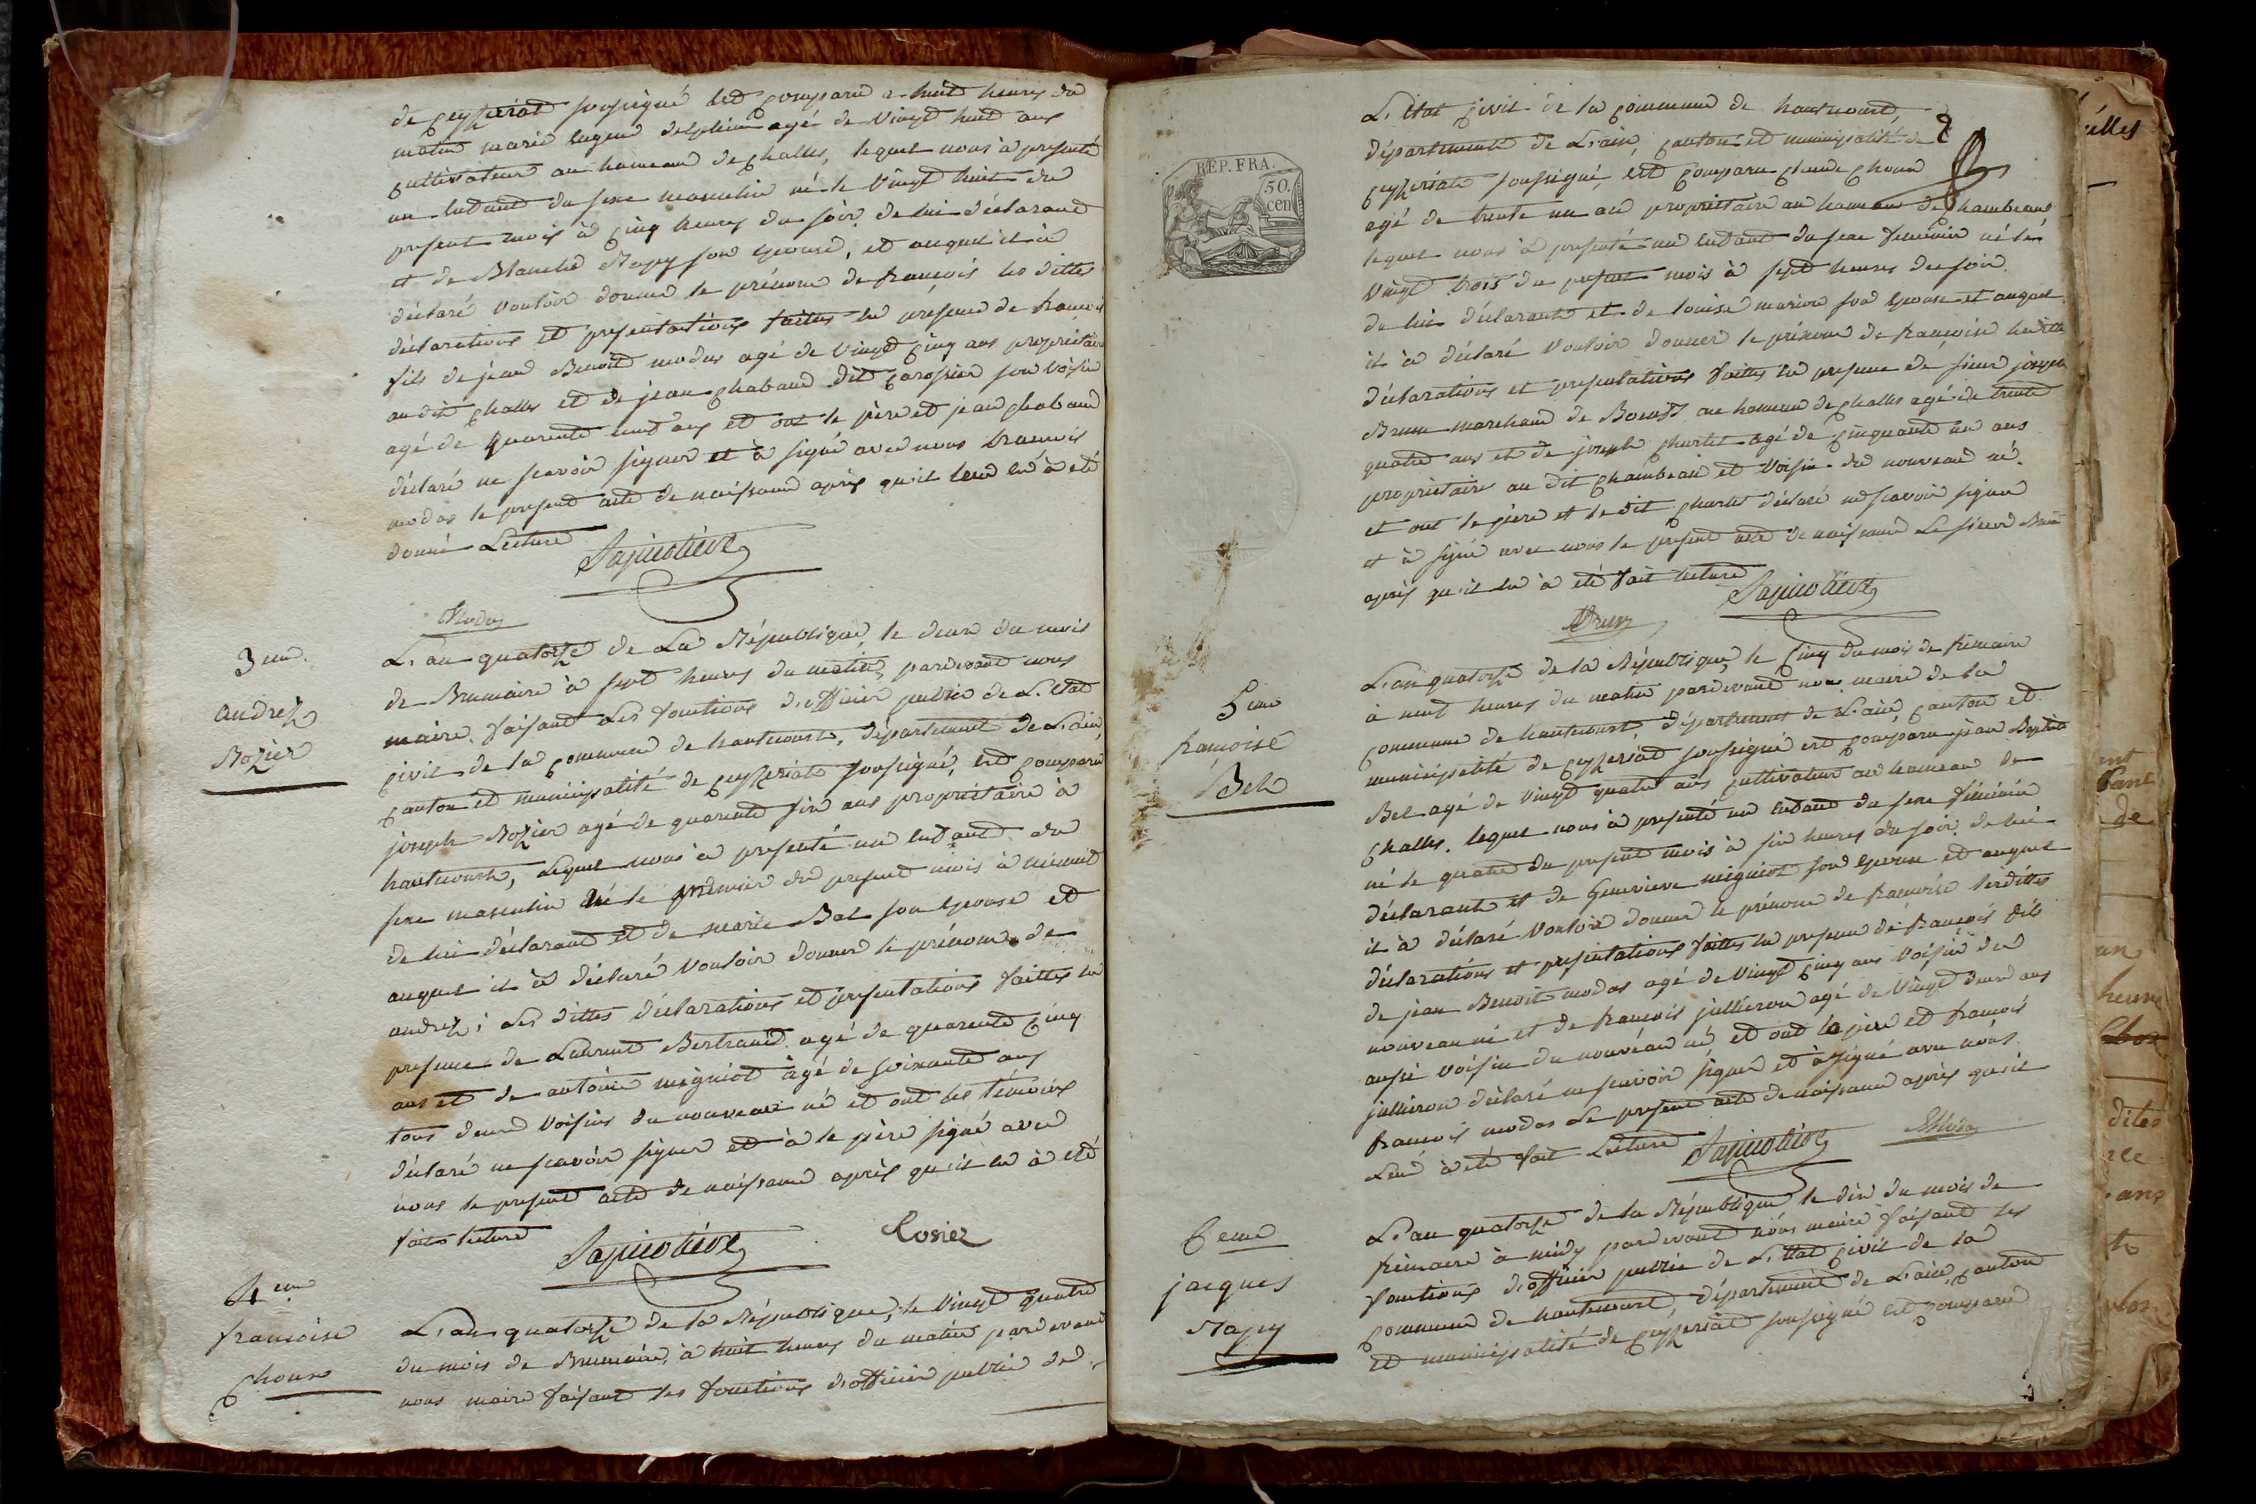 de ceyzeriat soussigné est comparu a huit heures du
matin marie eugene delphin agé de vingt huit ans
cultivateur au hameau de challes, lequel nous à presenté
un enfant du sexe masculin né le vingt huit du
present mois à cinq heures du soir de lui déclarant
et de Blanche Napy son epouse, et auquel il à
déclaré vouloir donner le prénom de francois les dittes
déclarations et presentations faittes en presence de francois
fils de jean Benoit modas agé de vingt cinq ans proprietaire
au dit challes et de jean chaband dit carossier son voisin
agé de quarente neuf ans et ont le père et jean chaband
déclaré ne scavoir signer et à signé avec nous francois
modas le present acte de naissance après qu'il leur en à eté
donné Lecture
Modas
3eme
andrez
Rozier
L'an quatorze de La République, le deux du mois
de Brumaire à sept heures du matin, pardevant nous
maire faisant Les fonctions d'officier public de L'etat
civil de la commune de hautecourt, département de L'ain,
canton et municipalité de ceyzeriat soussigné, est comparu
joseph Rozier agé de quarente six ans proprietaire à
hautecourt, Lequel nous à presenté un enfant du
sexe masculin né le premier du present mois à minuit
de lui déclarant et de marie Bal son epouse et
auquel il à déclaré vouloir donner le prénom de
andrez; Les dittes déclarations et presentations faittes en
presence de Laurent Bertrand agé de quarente cinq
ans et de antoine migniot àgé de soixante ans
tous deux voisins du nouveau né et ont les témoins
déclaré ne scavoir signer et à le père signé avec
nous le present acte de naissance après qu'il en à eté
faite lecture
Rosier
4eme
francoise
choux
L'an quatorze de la République, le vingt quatre
du mois de Brumaire, à huit heures du matin pardevant
nous maire faisant les fonctions d'officier public de
REP. FRA.
50.
cen
L'etat civil de la commune de hautecourt,
département de L'ain, canton et municipalité de
ceyzeriat soussigné, est comparu claude choux
agé de trente un an proprietaire au hameau de chambeau
lequel nous à presenté un enfant du sexe feminin né le
vingt trois du present mois à sept heures du soir
de lui déclarant et de louise marion son epouse et auquel
il à déclaré vouloir donner le prénom de francoise les dittes
déclarations et presentations faittes en presence de sieur joseph
Brun marchand de au hameau de challes agé de trente
quatre ans et de joseph agé de cinquante un ans
proprietaires au dit chambeau et voisin du nouveau né
et ont le père et le dit déclaré ne scavoir signer
et à signé avec nous le present acte de naissance Le sieur Brun
après qu'il en à eté fait lecture
Brun
5eme
francoise
Bel
L'an quatorze de la République, le cinq du mois de frimaire
à neuf heures du matin pardevant nous maire de la
commune de hautecourt, département de L'ain, canton et
municipalité de ceyzeriat soussigné est comparu jean Baptiste
Bel agé de vingt quatre ans cultivateur au hameau de
challes, lequel nous à presenté un enfant du sexe feminin
né le quatre du present mois à six heures du soir de lui
déclarant et de Genevieve migniot son epouse et auquel
il à déclaré vouloir donner le prénom de francoise lesdittes
déclarations et presentations faittes en presence de francois fils
de jean Benoit modas agé de vingt cinq ans voisin du
nouveau né et de francois jullieron agé de vingt deux ans
aussi voisin du nouveau né et ont le père et francois
jullieron déclaré ne scavoir signer et à signé avec nous
francois modas Le present acte de naissance après qu'il
en à eté fait Lecture
Modas
6eme
jacques
Napy
L'an quatorze de la République le dix du mois de
frimaire à midy pardevant nous maire faisant les
fonctions d'officier public de L'etat civil de la
commune de hautecourt, département de L'ain, canton
et municipalité de ceyzeriat soussigné est comparu